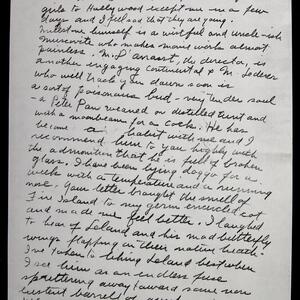 girls to Hollywood except me in a few
days and I feel sad that they are going.
Milestone himself is a wistful and uncle-ish
Muscovite who makes movie work almost
painless. M. D'Arrast, the director, is
another engaging continental & M. Lederer
who will track you down soon is
a sort of poisonous bud - very under soul
- a Peter Pan weaned on distilled turnip and
with a moonbeam for a cock. He has
become a habit with me and I
recommend him to you highly with
the admonition that he is full of broken
glass. I have been lying doggo for a
week with a temperature and a running
nose. Your letter brought the smell of
Fire Island to my germ encrusted cot
and made me feel better. I laughed
to hear of Leland and his mad butterfly
wings flapping in their native heath.
I've taken to liking Leland best when
I see him as an endless fuse
sputtering away toward some non
existent barrels of